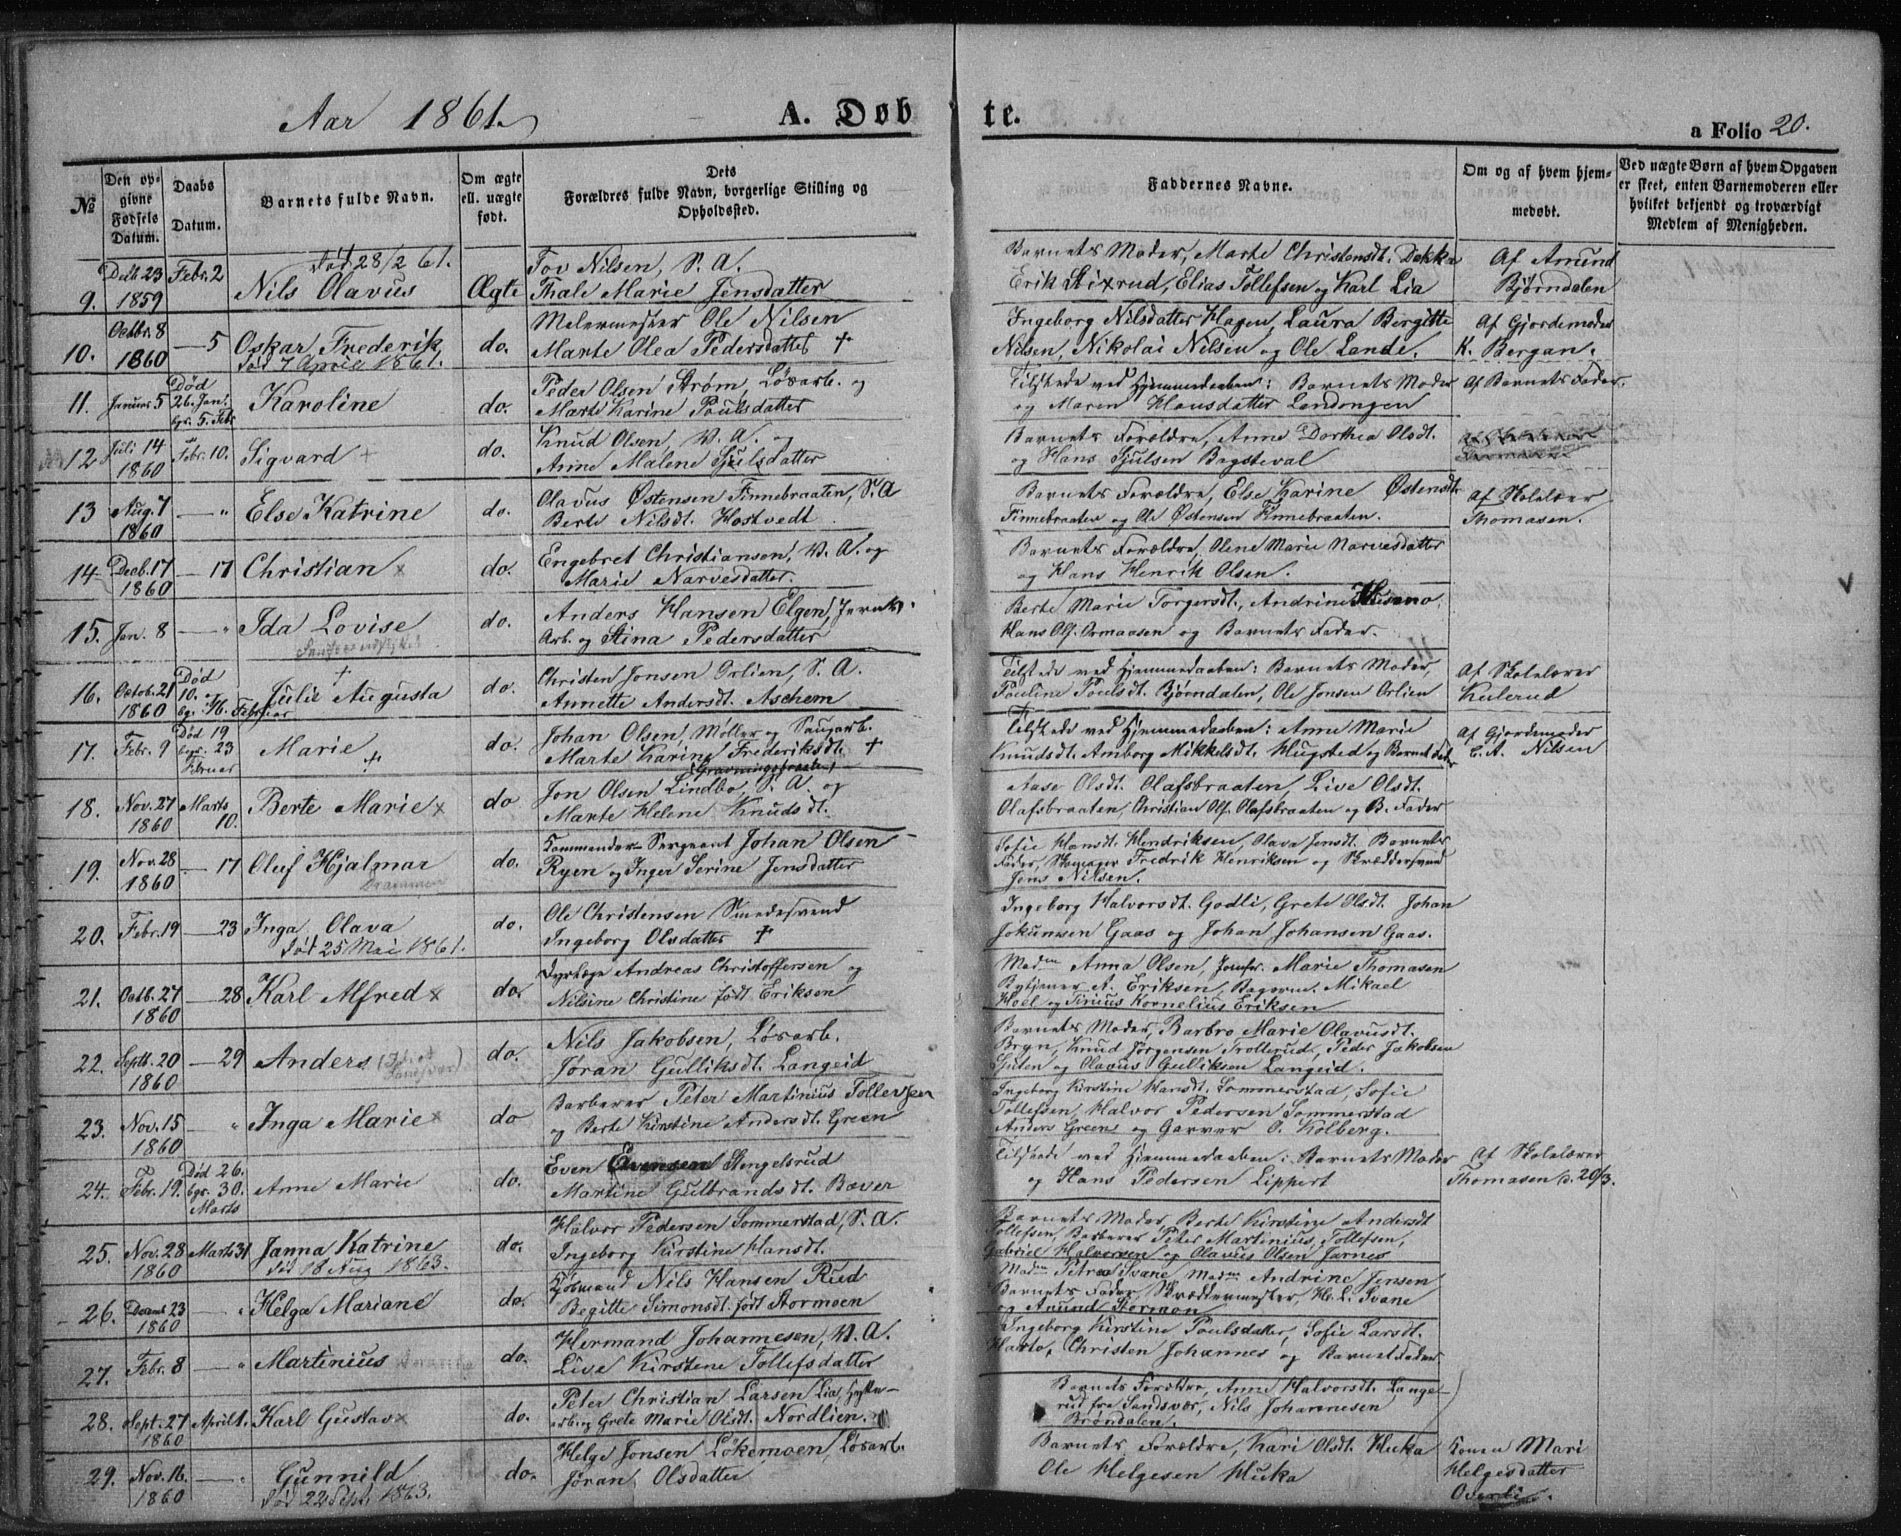 Aar 1861.
A. Døbte.
a Folio 20.
№
Den opgivne Fødsels Datum.
Daabs Datum.
Barnets fulde Navn.
Om ægte ell. uægte født.
Dets Forældres fulde Navn, borgerlige Stilling og Opholdssted.
Faddernes Navne.
Om og af hvem hjemmedøbt.
Ved uægte Børn af hvem Opgaven er skeet, enten Barnemoderen eller hvilket bekjendt og troværdigt Medlem af Menigheden.
9. 23 1859 Febr. 2 Nils Olavus død 28/2 61. Ægte
Tov Nilsen, S. A.
Thale Marie Jensdatter
Barnets Moder, Marte Christensdt. Dokka
Erik Skixrud, Elias Tollefsen og Karl Lia
Af Amund
Bjørndalen
10. Octbr. 8 1860 — 5 Oskar Frederik død 7 April 1861. do.
Malermester Ole Nilsen
Marte Olea Pedersdatter †
Ingeborg Nilsdatter Hagen, Laura Bergitte
Nilsen, Nikolai Nilsen og Ole Lande.
Af Gjordemoder
K. Bergan.
11. Januar 5 Død 26. Jan. bgr. 5. Febr Karoline do.
Peder Olsen Strøm, Løsarb. og
Marte Karine Poulsdatter
Tilstede ved Hjemmedaaben: Barnets Moder
og Maren Hansdatter Landongen
Af Barnets Fader.
12 Juli 14 1860 Febr. 10. Sigvard + do.
Knud Olsen, V. A. og
Anne Malene Sjulsdatter
Barnets Forældre, Anne Dorthea Olsdt.
og Hans Sjulsen Bagsteval
13 Aug. 7 1860 — " Else Katrine do.
Olavus Østensen Finnebraaten, S. A
Berte Nilsdt. Hostvedt
Barnets Forældre, Else Karine Østensdt.
Finnebraaten og Ole Østensen Finnebraaten.
Af Skolelær
Thomasen.
14 Decb. 17 1860 — 17 Christian x do.
Engebret Christiansen, V. A. og
Marie Narvesdatter.
Barnets Forældre, Olene Marie Narvesdatter
og Hans Henrik Olsen.
15. Jan. 8 — " Ida Lovise do.
Anders Hansen Elgen, Jernv.
Arb. og Stina Pedersdatter
Berte Marie Torgersdt., Andrine
Hans Olf. Ormaasen og Barnets Fader.
16. Octob. 21 1860 Død 10. bgr. 16. Februar Julie Augusta + do.
Christen Jonsen Orlien, S. A.
Annette Andersdt. Aschem
Tilstede ved Hjemmedaaben: Barnets Moder,
Pauline Poulsdt. Bjørndalen, Ole Jonsen Orlien
Af Skolelærer
Kulerud
17. Febr. 9 Død 19 bgr. 23 Februar Marie + do.
Johan Olsen, Møller og Saugarb.
Marte Karine Frederiksdt. †
Tilstede ved Hjemmedaaben: Anne Marie
Knudsdt. Amborg Mikkelsdt. Hugsted og Barnets Fader
Af Gjordemoder
C. A. Nilsen
18. Nov. 27 1860 Marts 10. Berte Marie x do
Jon Olsen Lindbo, S. A. og
Marte Helene Knudsdt.
Aase Olsdt. Olafsbraaten, Live Olsdt.
Olafsbraaten, Christian Olf. Olafsbraaten og B. Fader
19. Nov. 28 1860 — 17 Oluf Hjalmar Drammen do.
Kommander-Sergeant Johan Olsen
Ryen og Inger Serine Jensdatter
Sofie Hansdt. Hendriksen, Olava Jensdt. Barnets
Fader, Skomager Fredrik Henriksen og Skræddersvend
Jens Nilsen.
20. Febr. 19 — 23 Inga Olava død 25 Mai 1861. do.
Ole Christensen Smedesvend
Ingeborg Olsdatter †
Ingeborg Halvorsdt. Godli, Grete Olsdt. Johan
Jokumsen Gaas og Johan Johansen Gaas.
21. Octb. 27 1860 — 28 Karl Alfred x do.
Dyrlæge Andreas Christoffersen og
Nilsine Christine født Eriksen
Madm Anna Olsen, Jomfr. Marie Thomasen
Bytjener A. Eriksen, Bagersv. Mikael
Hoel og Tinius Kornelius Eriksen
22. Septb. 20 1860 — 29 Anders do.
Nils Jakobsen, Løsarb.
Jøran Gulliksdt. Langeid
Barnets Moder, Barbro Marie Olavusdt.
Bryn, Knud Jørgensen Trollerud, Peder Jakobsen
Sputen og Olavus Gulliksen Langeid.
23. Nov. 15 1860 " Inga Marie x do
Barberer Peter Martinius Tollefsen
og Berte Kirstine Andersdt. Green
Ingeborg Kirstine Hansdt. Sommerstad, Sofie
Tollefsen, Halvor Pedersen Sommerstad
Anders Green og Garver O. Kolberg.
24. Febr. 19. Død 26. bgr. 30. Marts Anne Marie do.
Even Evensen Stengelsrud
Martine Gulbrandsdt. Bæver
Tilstede ved Hjemmedaaben: Barnets Moder
og Hans Pedersen Lippert
Af Skolelærer
Thomasen d. 20/3.
25. Nov. 28 1860 Marts 31 Janna Katrine død 18 Aug 1863. do.
Halvor Pedersen Sommerstad, S. A.
Ingeborg Kirstine Hansdt.
Barnets Moder, Berte Kirstine Andersdt
Tollefsen, Barberer Peter Martinius Tollefsen,
Gabriel Halvorsen og Olavus Olsen Jarnes
26. Decmb 23 1860 — " Helga Mariane do.
Kjøbmand Nils Hansen Rud
Begitte Simonsdt. født Stormoen
Madm Petrea Svane, Madm Andrine Jensen
Barnets Fader, Skræddermester, H. L. Svane
og Anund Stormoen
27. Febr. 8 — " Martinius do.
Hermand Johannesen, V. A.
Live Kirstene Tollefsdatter
Ingeborg Kirstine Poulsdatter, Sofie Larsdt.
Harto, Christen Johannes og Barnets Fader
28. Sept. 27 1860 April 1. Karl Gustav x do.
Peter Christian Larsen Lia, Hytte-
arb. og Grete Marie Olsdt. Nordlien.
Barnets Forældre, Anne Halvorsdt. Lange-
rud fra Sandsvær, Nils Johannesen
Brøndalen.
29. Nov. 16. 1860 — " Gunnild død 22 Sept. 1863. do.
Helge Jonsen Løkemoen, Løsarb.
Jøran Olsdatter
Barnets Forældre, Kari Olsdt. Huka
Ole Helgesen Huka
Konen Mari
Helgesdatter